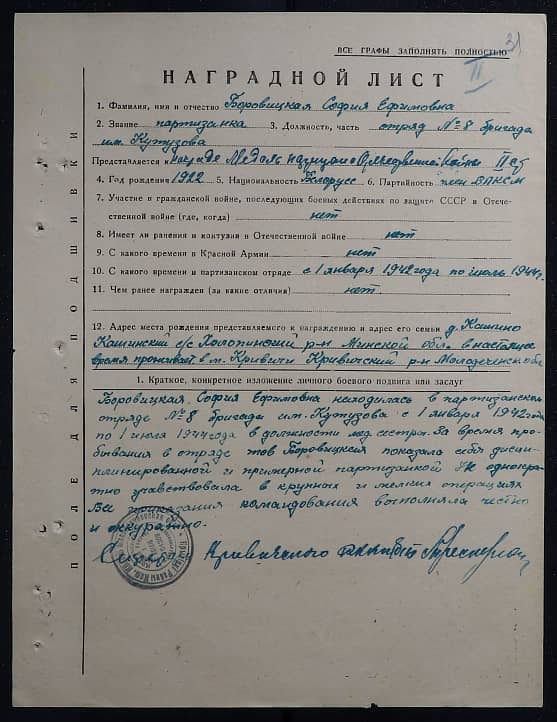 31
ВСЕ ГРАФЫ ЗАПОЛНЯТЬ ПОЛНОСТЬЮ
II
НАГРАДНОЙ ЛИСТ
1. Фамилия, имя и отчество Боровицкая София Ефимовна
2. Звание партизанка 3. Должность, часть отряд № 8 бригада
им. Кутузова
Представляется к награде Медаль Отечественной Войны II ст
4. Год рождения 1922 5. Национальность Белорусс 6. Партийность член ВЛКСМ
7. Участие в гражданской войне, последующих боевых действиях по защите СССР и Отече-
ственной войне (где, когда) нет
8. Имеет ли ранения и контузии в Отечественной войне нет
9. С какого времени в Красной Армии нет
10. С какого времени в партизанском отряде с 1 января 1942 года по июль 1944г.
11. Чем ранее награжден (за какие отличия) нет.
12. Адрес места рождения представляемого к награждению и адрес его семьи д. Кашино
Кашинский с/с Холопиничский р-н Минской обл. в настоящее
время проживает в м. Кривичи Кривичский р-н Молодечненской обл
1. Краткое, конкретное изложение личного боевого подвига или заслуг
Боровицкая София Ефимовна находилась в партизанском
отряде № 8 бригады им. Кутузова с 1 января 1942 года
по 1 июля 1944 года в должности мед. сестры. За время про-
бывания в отряде тов Боровицкая показала себя дисци-
плинированной и примерной партизанкой. Не однокра-
тно учавствовала в крупных и мелких операциях
Все приказания командования выполняла честно
и аккуратно.
Кривичского
ПОЛЕ ДЛЯ ПОДШИВКИ